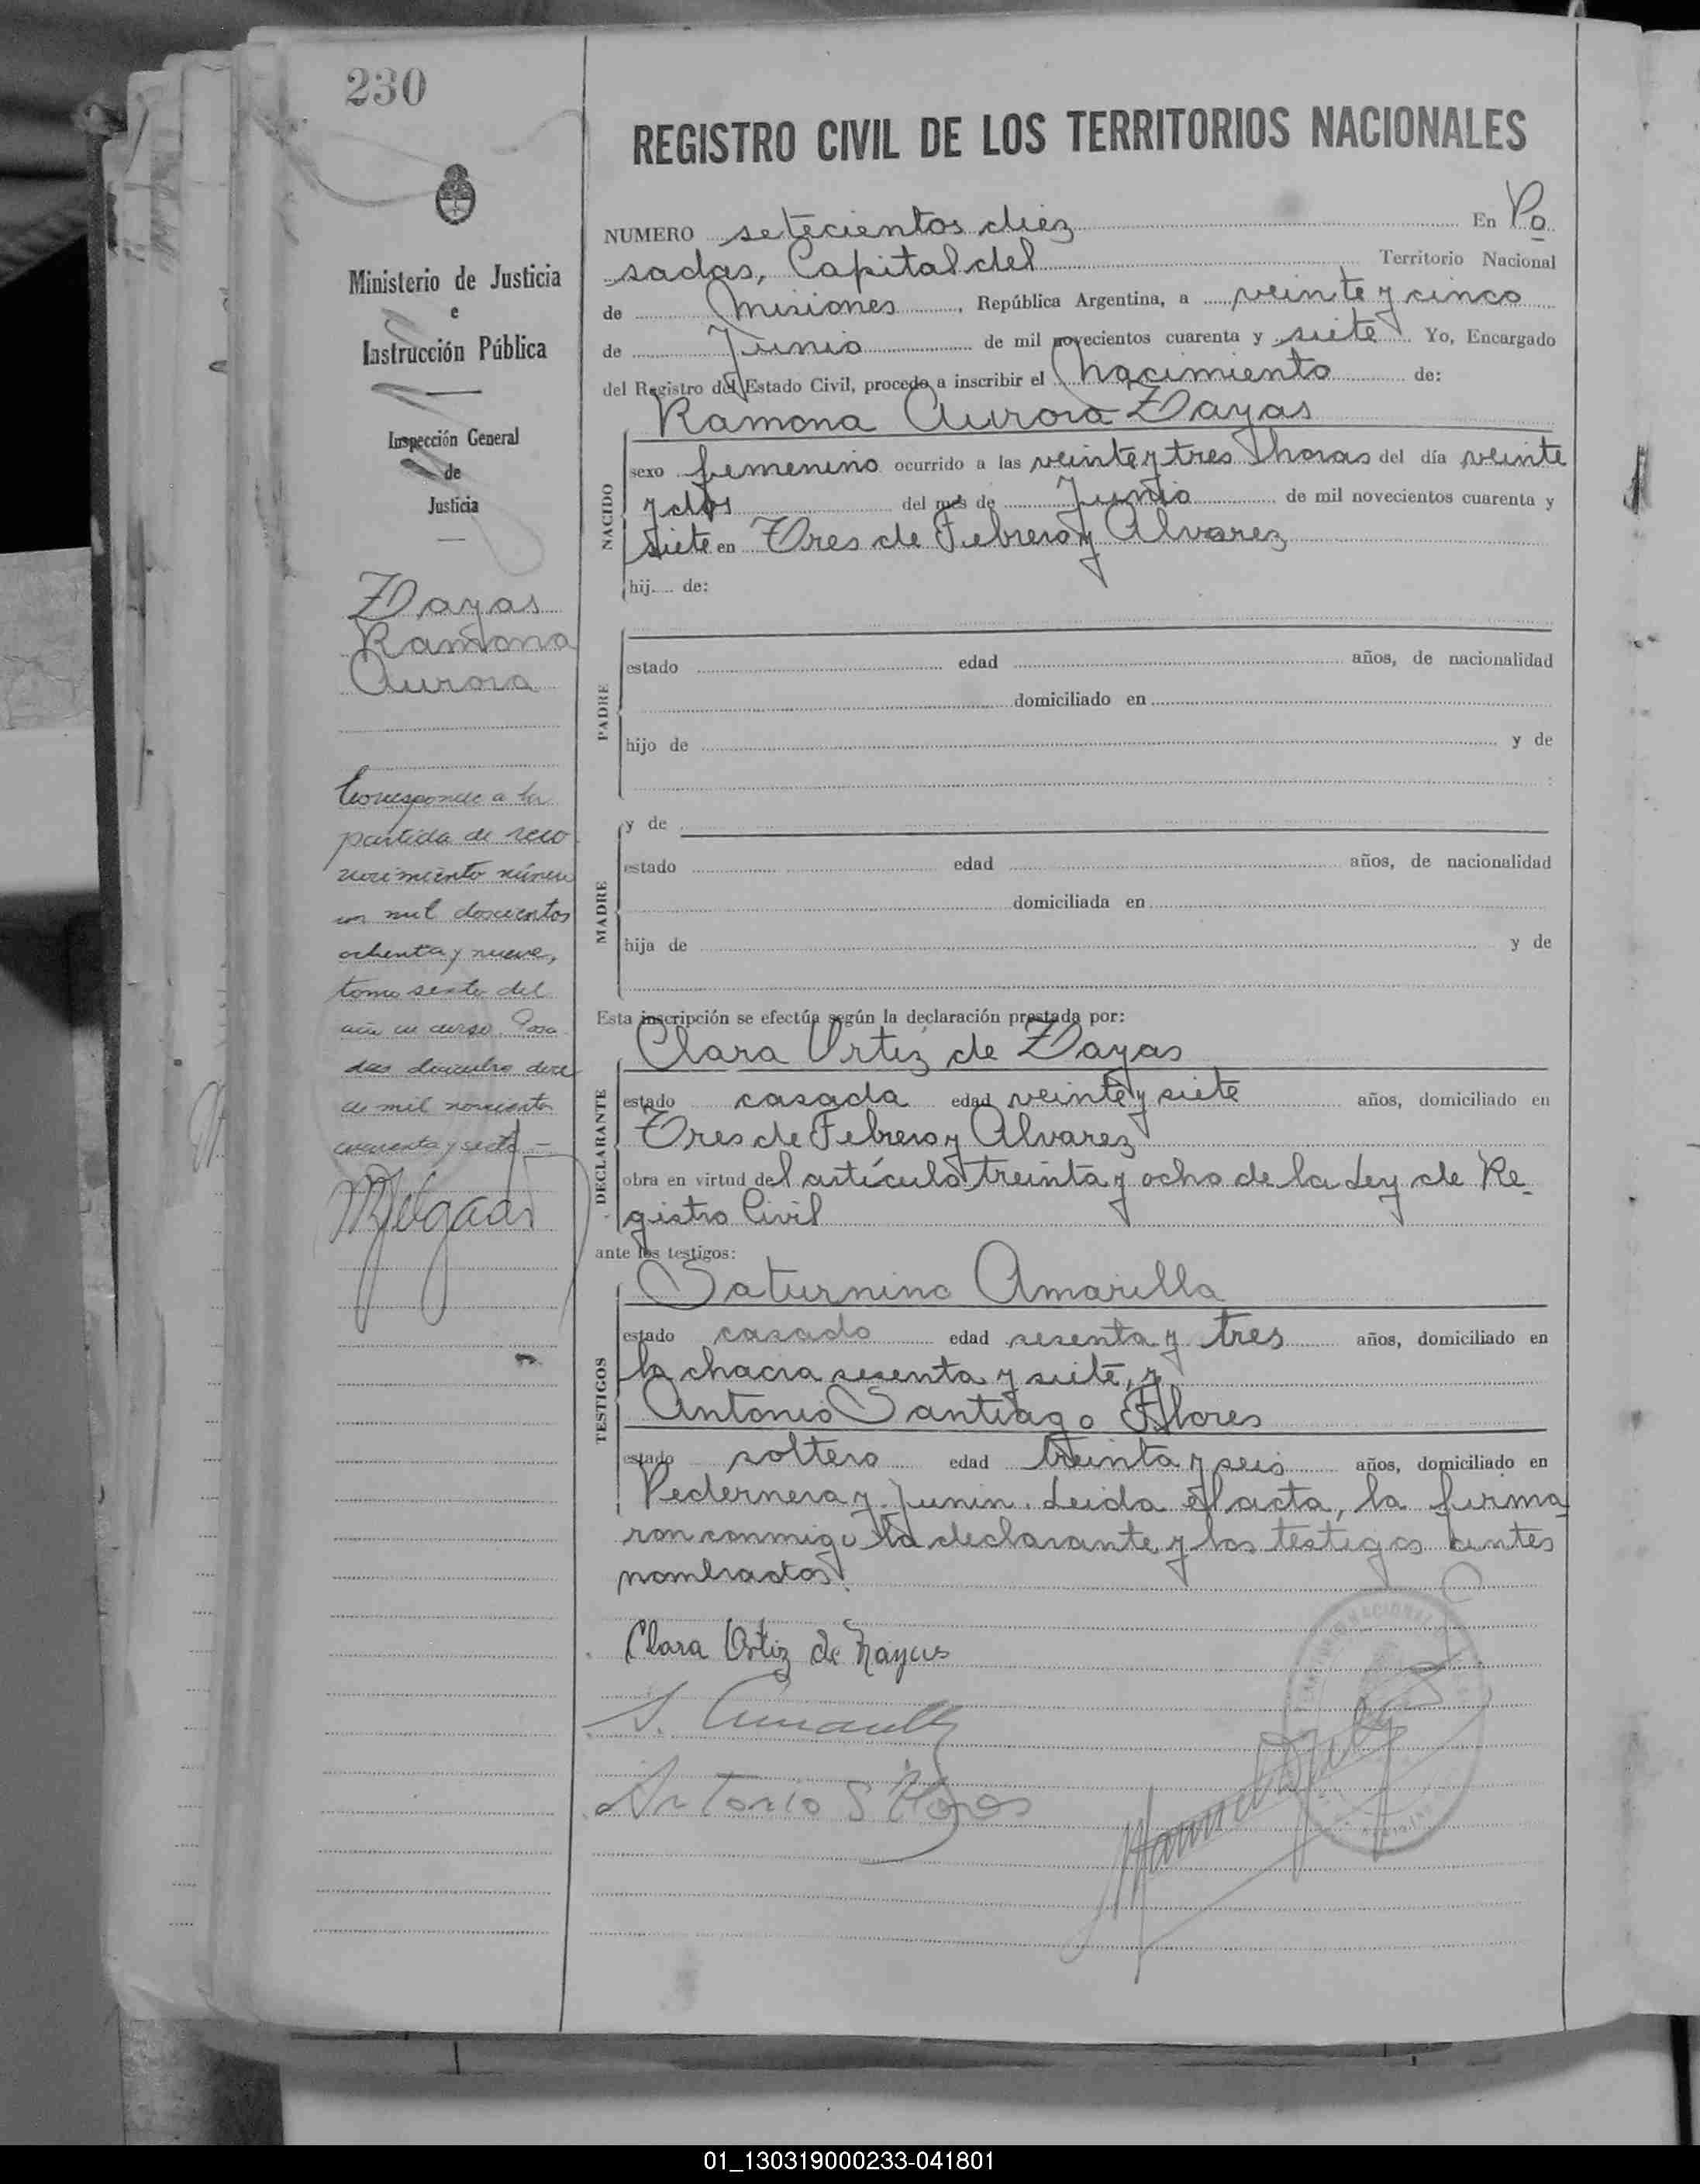 230
REGISTRO CIVIL DE LOS TERRITORIOS NACIONALES
Ministerio de Justicia
e
Instrucción Pública
Inspección General
de
Justicia
Zayas
Ramona
Aurora
Corresponde a la
partida de reco
nocimiento número
un mil doscientos
ochenta y nueve,
tomo sexto del
año en curso. Posa
das diciembre doce
de mil novecientos
cuarenta y siete –
NUMERO setecientos diez En Po
sadas, Capital del Territorio Nacional
de Misiones, República Argentina, a veinte y cinco
de Junio de mil novecientos cuarenta y siete Yo, Encargado
del Registro del Estado Civil, procedo a inscribir el Nacimiento de:
Ramona Aurora Zayas
NACIDO
sexo femenino ocurrido a las veinte y tres horas del día veinte
y dos del mes de Junio de mil novecientos cuarenta y
siete en Tres de Febrero y Alvarez
hij.... de:
PADRE
estado edad años, de nacionalidad
domiciliado en
hijo de y de
MADRE
y de
estado edad años, de nacionalidad
domiciliada en
hija de y de
Esta inscripción se efectúa según la declaración prestada por:
DECLARANTE
Clara Ortiz de Zayas
estado casada edad veinte y siete años, domiciliado en
Tres de Febrero y Alvarez
obra en virtud del artículo treinta y ocho de la Ley de Re-
gistro Civil
ante los testigos:
TESTIGOS
Saturnino Amarilla
estado casado edad sesenta y tres años, domiciliado en
la chacra sesenta y siete, y
Antonio Santiago Flores
estado soltero edad treinta y seis años, domiciliado en
Pedernera y Junin. Leida el acta, la firma
ron conmigo la declarante y los testigos antes
nombrados.
Clara Ortiz de Zayas
S. Amarilla
Antonio S Flores
01_130319000233-041801